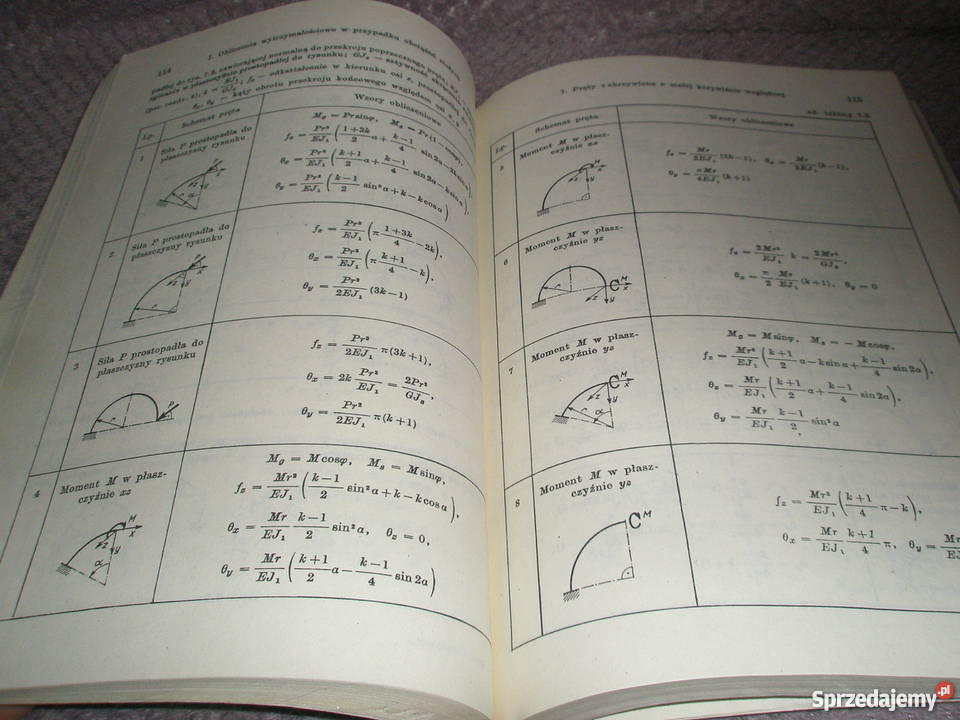 114
I. Obliczenia wytrzymałościowe w przypadku obciążeń stałych
padłej do rys. 7.2, zawierającej normalną do przekroju poprzecznego pręta;
k = EJ₁ / GJₛ; f_z — odkształcenie w kierunku osi z,
θₓ, θ_y — kąty obrotu przekroju końcowego względem osi x, y
Lp.
Schemat pręta
Wzory obliczeniowe
1
Siła P prostopadła do
płaszczyzny rysunku
M_g = Pr sinφ, M_s = Pr(1 − cosφ),
f_z = Pr³/EJ₁ (
θₓ = Pr²/EJ₁ (
θ_y = Pr²/EJ₁ ( (k−1)/2 sin²α + k − k cosα )
2
Siła P prostopadła do
płaszczyzny rysunku
f_z = Pr³/EJ₁ ( π (1+3k)/4 − 2k ),
θₓ = Pr²/EJ₁ ( π (k+1)/4 − k ),
θ_y = Pr²/2EJ₁ (3k−1)
3
Siła P prostopadła do
płaszczyzny rysunku
f_z = Pr³/2EJ₁ π(3k+1),
θₓ = 2k Pr²/EJ₁ = 2Pr²/GJₛ,
θ_y = Pr²/2EJ₁ π(k+1)
4
Moment M w płasz-
czyźnie xz
M_g = M cosφ, M_s = M sinφ,
f_z = Mr²/EJ₁ ( (k−1)/2 sin²α + k − k cosα ),
θₓ = Mr/EJ₁ (k−1)/2 sin²α, θ_z = 0,
θ_y = Mr/EJ₁ ( (k+1)/2 α − (k−1)/4 sin2α )
7. Pręty zakrzywione o małej krzywiźnie względnej
115
cd. tablicy 7.2
Lp.
Schemat pręta
Wzory obliczeniowe
5
Moment M w płasz-
czyźnie xz
f_z = Mr²/2EJ₁ (3k−1), θₓ = Mr/2EJ₁ (k−1),
θ_y = πMr/4EJ₁ (k+1)
6
Moment M w płasz-
czyźnie yz
f_z = 2Mr²/EJ₁ k = 2Mr²/GJₛ,
θₓ = π/2 Mr/EJ₁ (k+1), θ_y = 0
7
Moment M w płasz-
czyźnie yz
M_g = M sinφ, M_s = − M cosφ,
f_z = Mr²/EJ₁ ( (k+1)/2 α − k sinα + (k−1)/4 sin2α ),
θₓ = Mr/EJ₁ ( (k+1)/2 α + (k−1)/4 sin2α ),
θ_y = Mr/EJ₁ (k−1)/2 sin²α
8
Moment M w płasz-
czyźnie yz
f_z = Mr²/EJ₁ ( (k+1)/4 π − k ),
θₓ = Mr/EJ₁ (k+1)/4 π, θ_y =
Sprzedajemy.pl